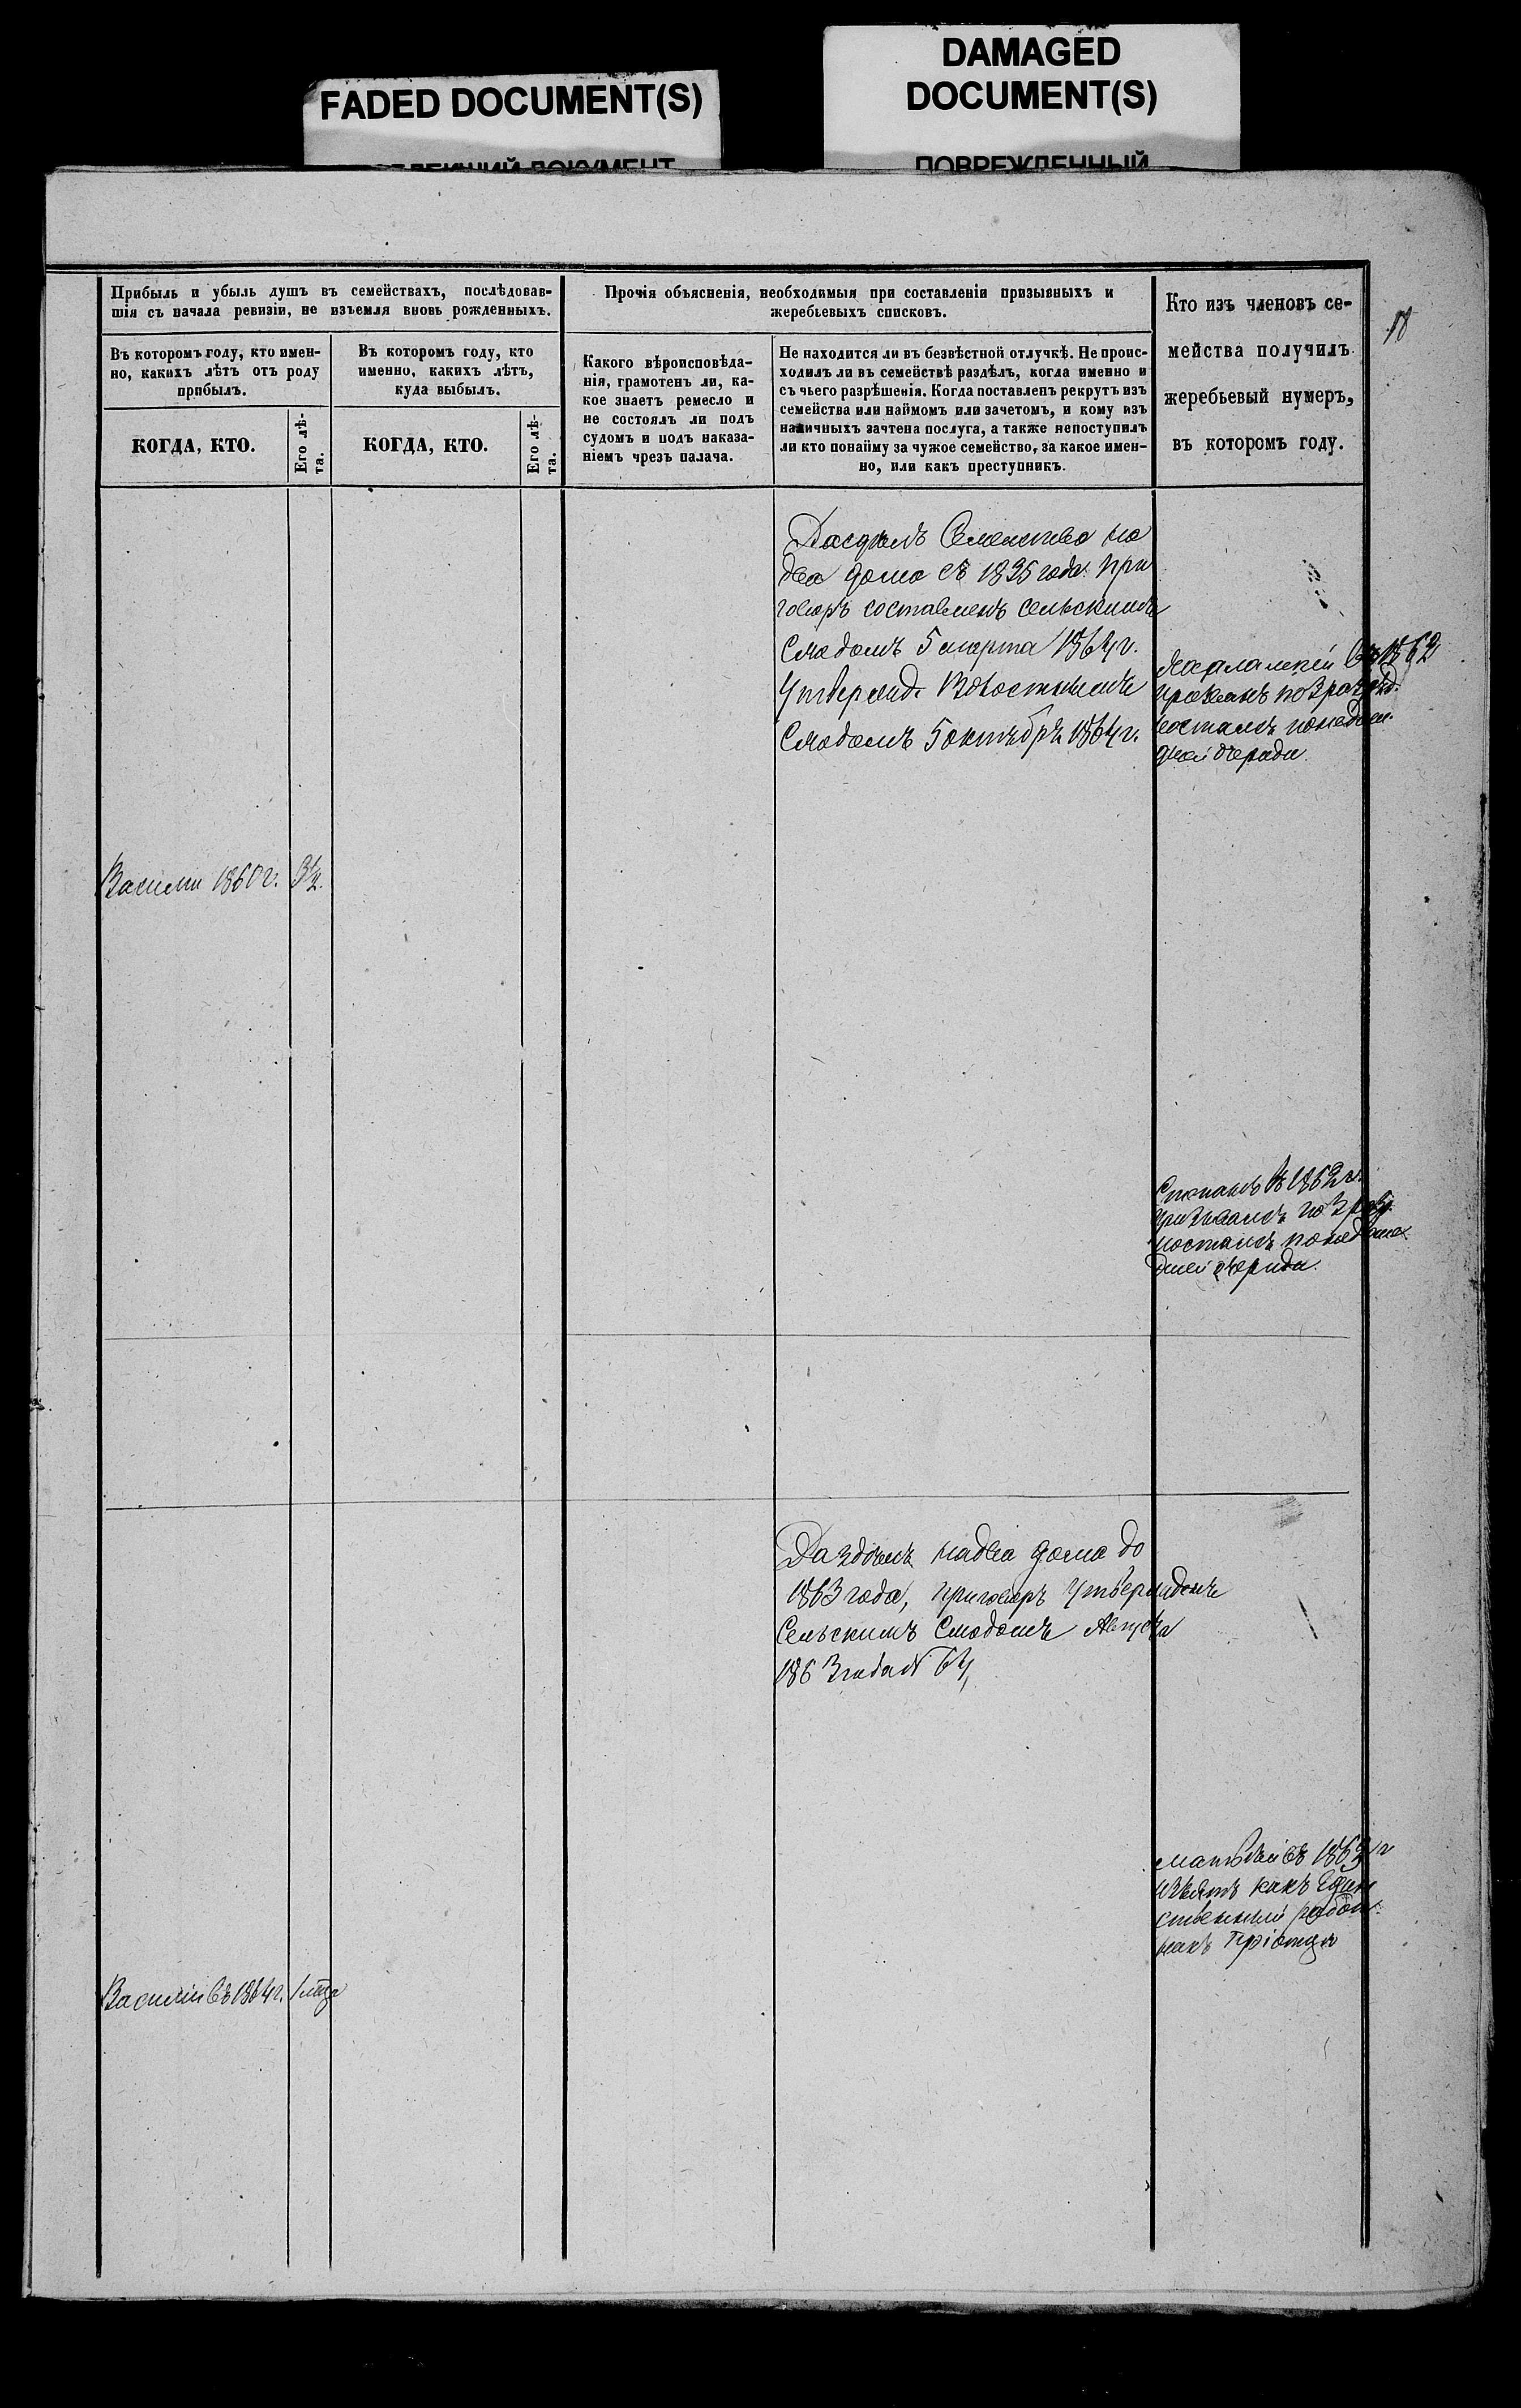 DAMAGED
DOCUMENT(S)
FADED DOCUMENT(S)
ПОВРЕЖДЕННЫЙ
ДОКУМЕНТ
18
Прибыль и убыль душъ въ семействахъ, послѣдовав-
шія съ начала ревизіи, не изъемля вновь рожденныхъ.
Прочія объясненія, необходимыя при составленіи призывныхъ и
жеребьевыхъ списковъ.
Кто изъ членовъ се-
мейства получилъ
жеребьевый нумеръ,
въ которомъ году.
Въ которомъ году, кто имен-
но, какихъ лѣтъ отъ роду
прибылъ.
Въ которомъ году, кто
именно, какихъ лѣтъ,
куда выбылъ.
Какого вѣроисповѣда-
нія, грамотенъ ли, ка-
кое знаетъ ремесло и
не состоялъ ли подъ
судомъ и подъ наказа-
ніемъ чрезъ палача.
Не находится ли въ безвѣстной отлучкѣ. Не проис-
ходилъ ли въ семействѣ раздѣлъ, когда именно и
съ чьего разрѣшенія. Когда поставленъ рекрутъ изъ
семейства или наймомъ или зачетомъ, и кому изъ
наличныхъ зачтена послуга, а также непоступилъ
ли кто понайму за чужое семейство, за какое имен-
но, или какъ преступникъ.
КОГДА, КТО.
Его лѣ-
та.
КОГДА, КТО.
Его лѣ-
та.
Семейства на
два дома съ 1825 года. При
говоръ составленъ сельскимъ
Сходомъ 5 марта 1864 г.
Утвержд. Волостнымъ
Сходомъ 5 октября 1864 г.
1862
по 3 разряд.
очереди.
Василий 1860 г. 3½.
Степанъ въ 1862 г.
по 3 разр.
очереди.
на два дома до
1863 года, приговоръ Утвержденъ
Сельскимъ Сходомъ Августа
1863 года N 64,
Матвей въ 1863 г
какъ Един
ственный работ.
никъ при отца
Василий въ 1864 г. 1 года